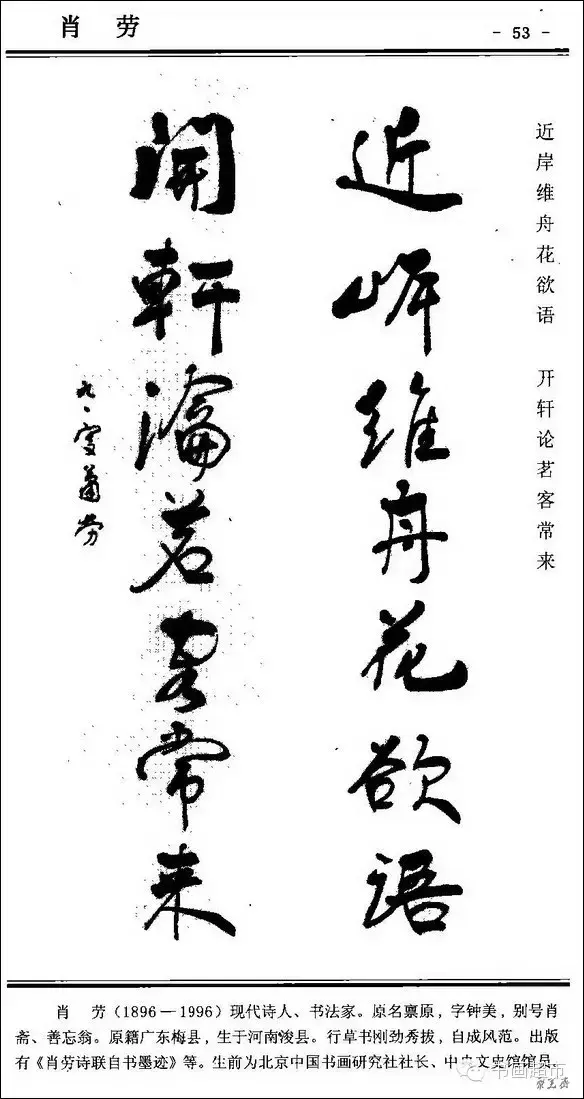 肖 劳
- 53 -
近岸维舟花欲语 开轩论茗客常来
近岸維舟花欲語
開軒瀹茗客常来
叟蕭劳
肖 劳(1896—1996)现代诗人、书法家。原名禀原,字钟美,别号肖
斋、善忘翁。原籍广东梅县,生于河南浚县。行草书刚劲秀拔,自成风范。出版
有《肖劳诗联自书墨迹》等。生前为北京中国书画研究社社长、中央文史馆馆员.
书画超市